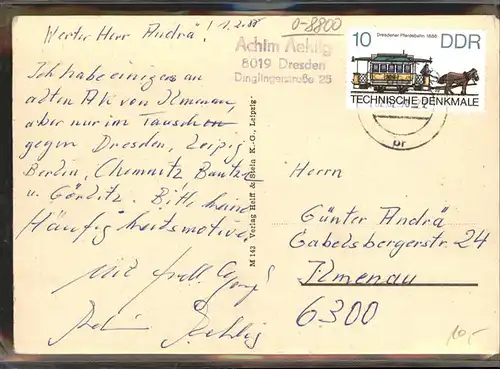 Werter Herr Andrä!
0-8800
Achim Aehlig
8019 Dresden
Dinglingerstraße 25
Dresdener Pferdebahn 1886
10 DDR
TECHNISCHE DENKMALE
Ich habe einiges an
alten AK von Ilmenau,
aber nur im Tausch
gegen Dresden, Leipzig
Berlin, Chemnitz Bautzen
u. Görlitz. Bitte keine
Häufigkeitsmotive.
Mit frdl.
Achim Aehlig
M 143 Verlag Reiff & Stein K.-G., Leipzig
Herrn
Günter Andrä
Gabelsbergerstr. 24
Ilmenau
6300
10,-